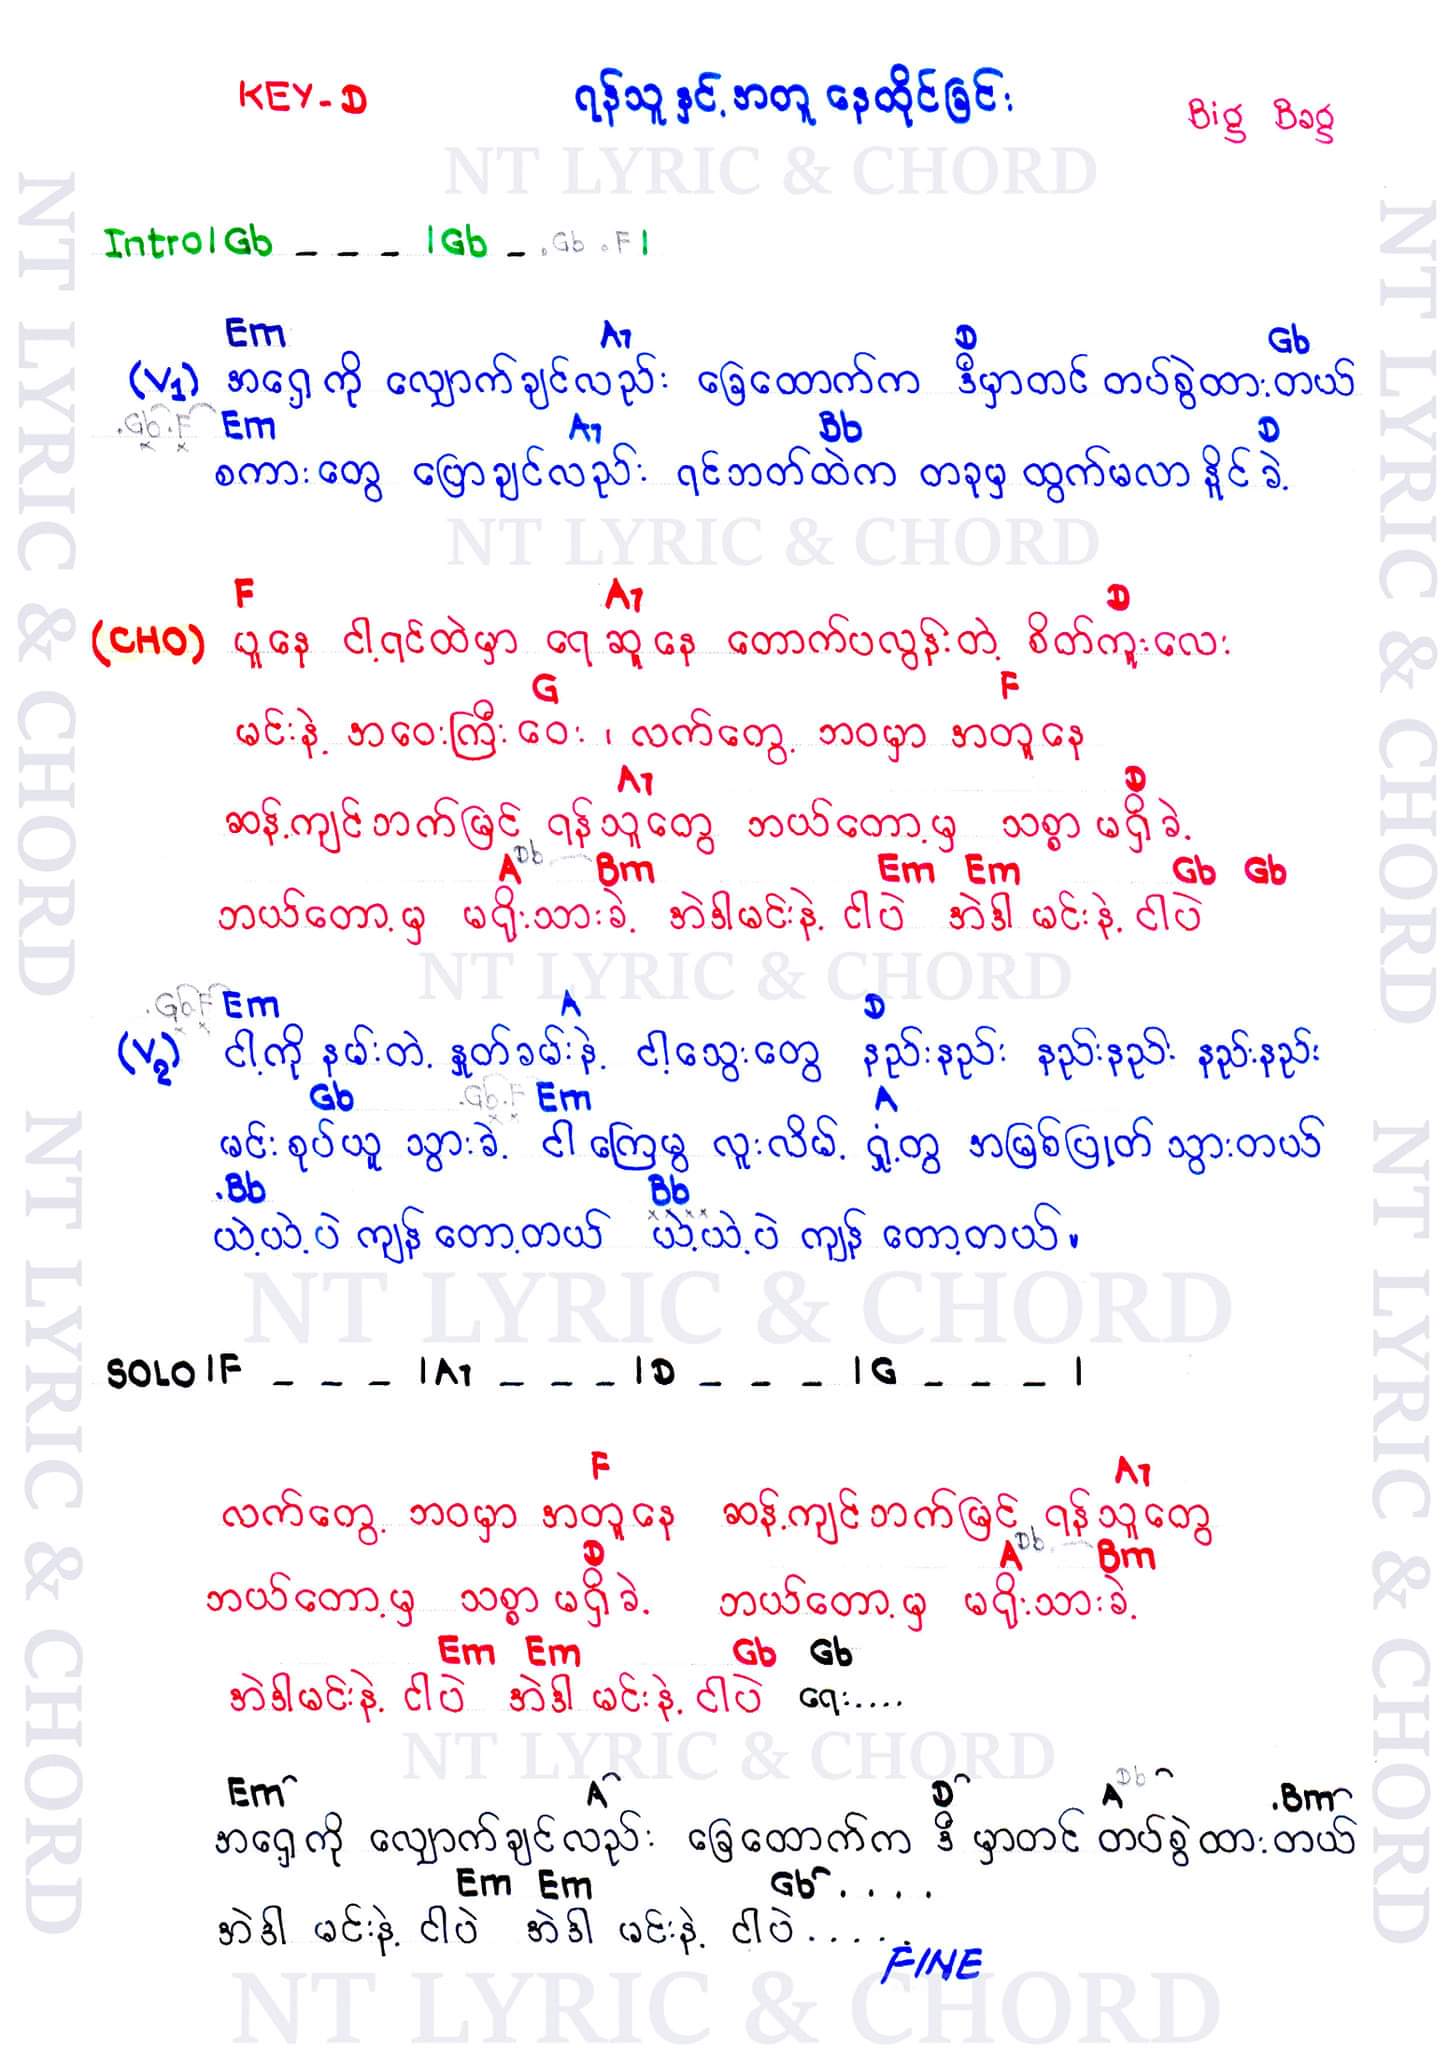 KEY-D ရန်သူနှင့်အတူ နေထိုင်ခြင်း Big Bag
NT LYRIC & CHORD
Intro|Gb _ _ _ |Gb _ .Gb .F|
Em A7 D Gb
(V1) အရှေ့ကို လျှောက်ချင်လည်း ခြေထောက်က ဒီမှာတင် တပ်စွဲထားတယ်
.Gb.F Em A7 Bb D
စကားတွေ ပြောချင်လည်း ရင်ဘတ်ထဲက တခုမှ ထွက်မလာနိူင်ခဲ့
NT LYRIC & CHORD
F A7 D
(CHO) ယူနေ ငါ့ရင်ထဲမှာ ရေဆူနေ တောက်ပလွန်းတဲ့ စိတ်ကူးလေး
G F
မင်းနဲ့ အဝေးကြီးဝေး ၊ လက်တွေ့ ဘဝမှာ အတူနေ
A7 D
ဆန့်ကျင်ဘက်မြင့် ရန်သူတွေ ဘယ်တော့မှ သစ္စာ မရှိခဲ့
A Db Bm Em Em Gb Gb
ဘယ်တော့မှ မရိုးသားခဲ့ အဲဒါမင်းနဲ့ ငါပဲ အဲဒါ မင်းနဲ့ ငါပဲ
NT LYRIC & CHORD
.Gb.F Em A D
(V2) ငါ့ကို နမ်းတဲ့ နှုတ်ခမ်းနဲ့ ငါ့သွေးတွေ နည်းနည်း နည်းနည်း နည်းနည်း
Gb .Gb.F Em A
မင်းစုပ်ယူ သွားခဲ့ ငါကြေမွ လူးလိမ့် ရှုံ့တွ အမြစ်ပြုတ် သွားတယ်
.Bb Bb
ယဲ့ယဲ့ပဲ ကျန်တော့တယ် ယဲ့ယဲ့ပဲ ကျန်တော့တယ်။
NT LYRIC & CHORD
SOLO|F _ _ _ |A7 _ _ _ |D _ _ _ |G _ _ _ |
F A7
လက်တွေ့ ဘဝမှာ အတူနေ ဆန့်ကျင်ဘက်မြင့် ရန်သူတွေ
D A Db Bm
ဘယ်တော့မှ သစ္စာ မရှိခဲ့ ဘယ်တော့မှ မရိုးသားခဲ့
Em Em Gb Gb
အဲဒါမင်းနဲ့ ငါပဲ အဲဒါ မင်းနဲ့ ငါပဲ ရေး....
NT LYRIC & CHORD
Em A D A Db .Bm
အရှေ့ကို လျှောက်ချင်လည်း ခြေထောက်က ဒီ မှာတင် တပ်စွဲထားတယ်
Em Em Gb....
အဲဒါ မင်းနဲ့ ငါပဲ အဲဒါ မင်းနဲ့ ငါပဲ.....
FINE
NT LYRIC & CHORD
NT LYRIC & CHORD
NT LYRIC & CHORD
NT LYRIC & CHORD
NT LYRIC & CHORD